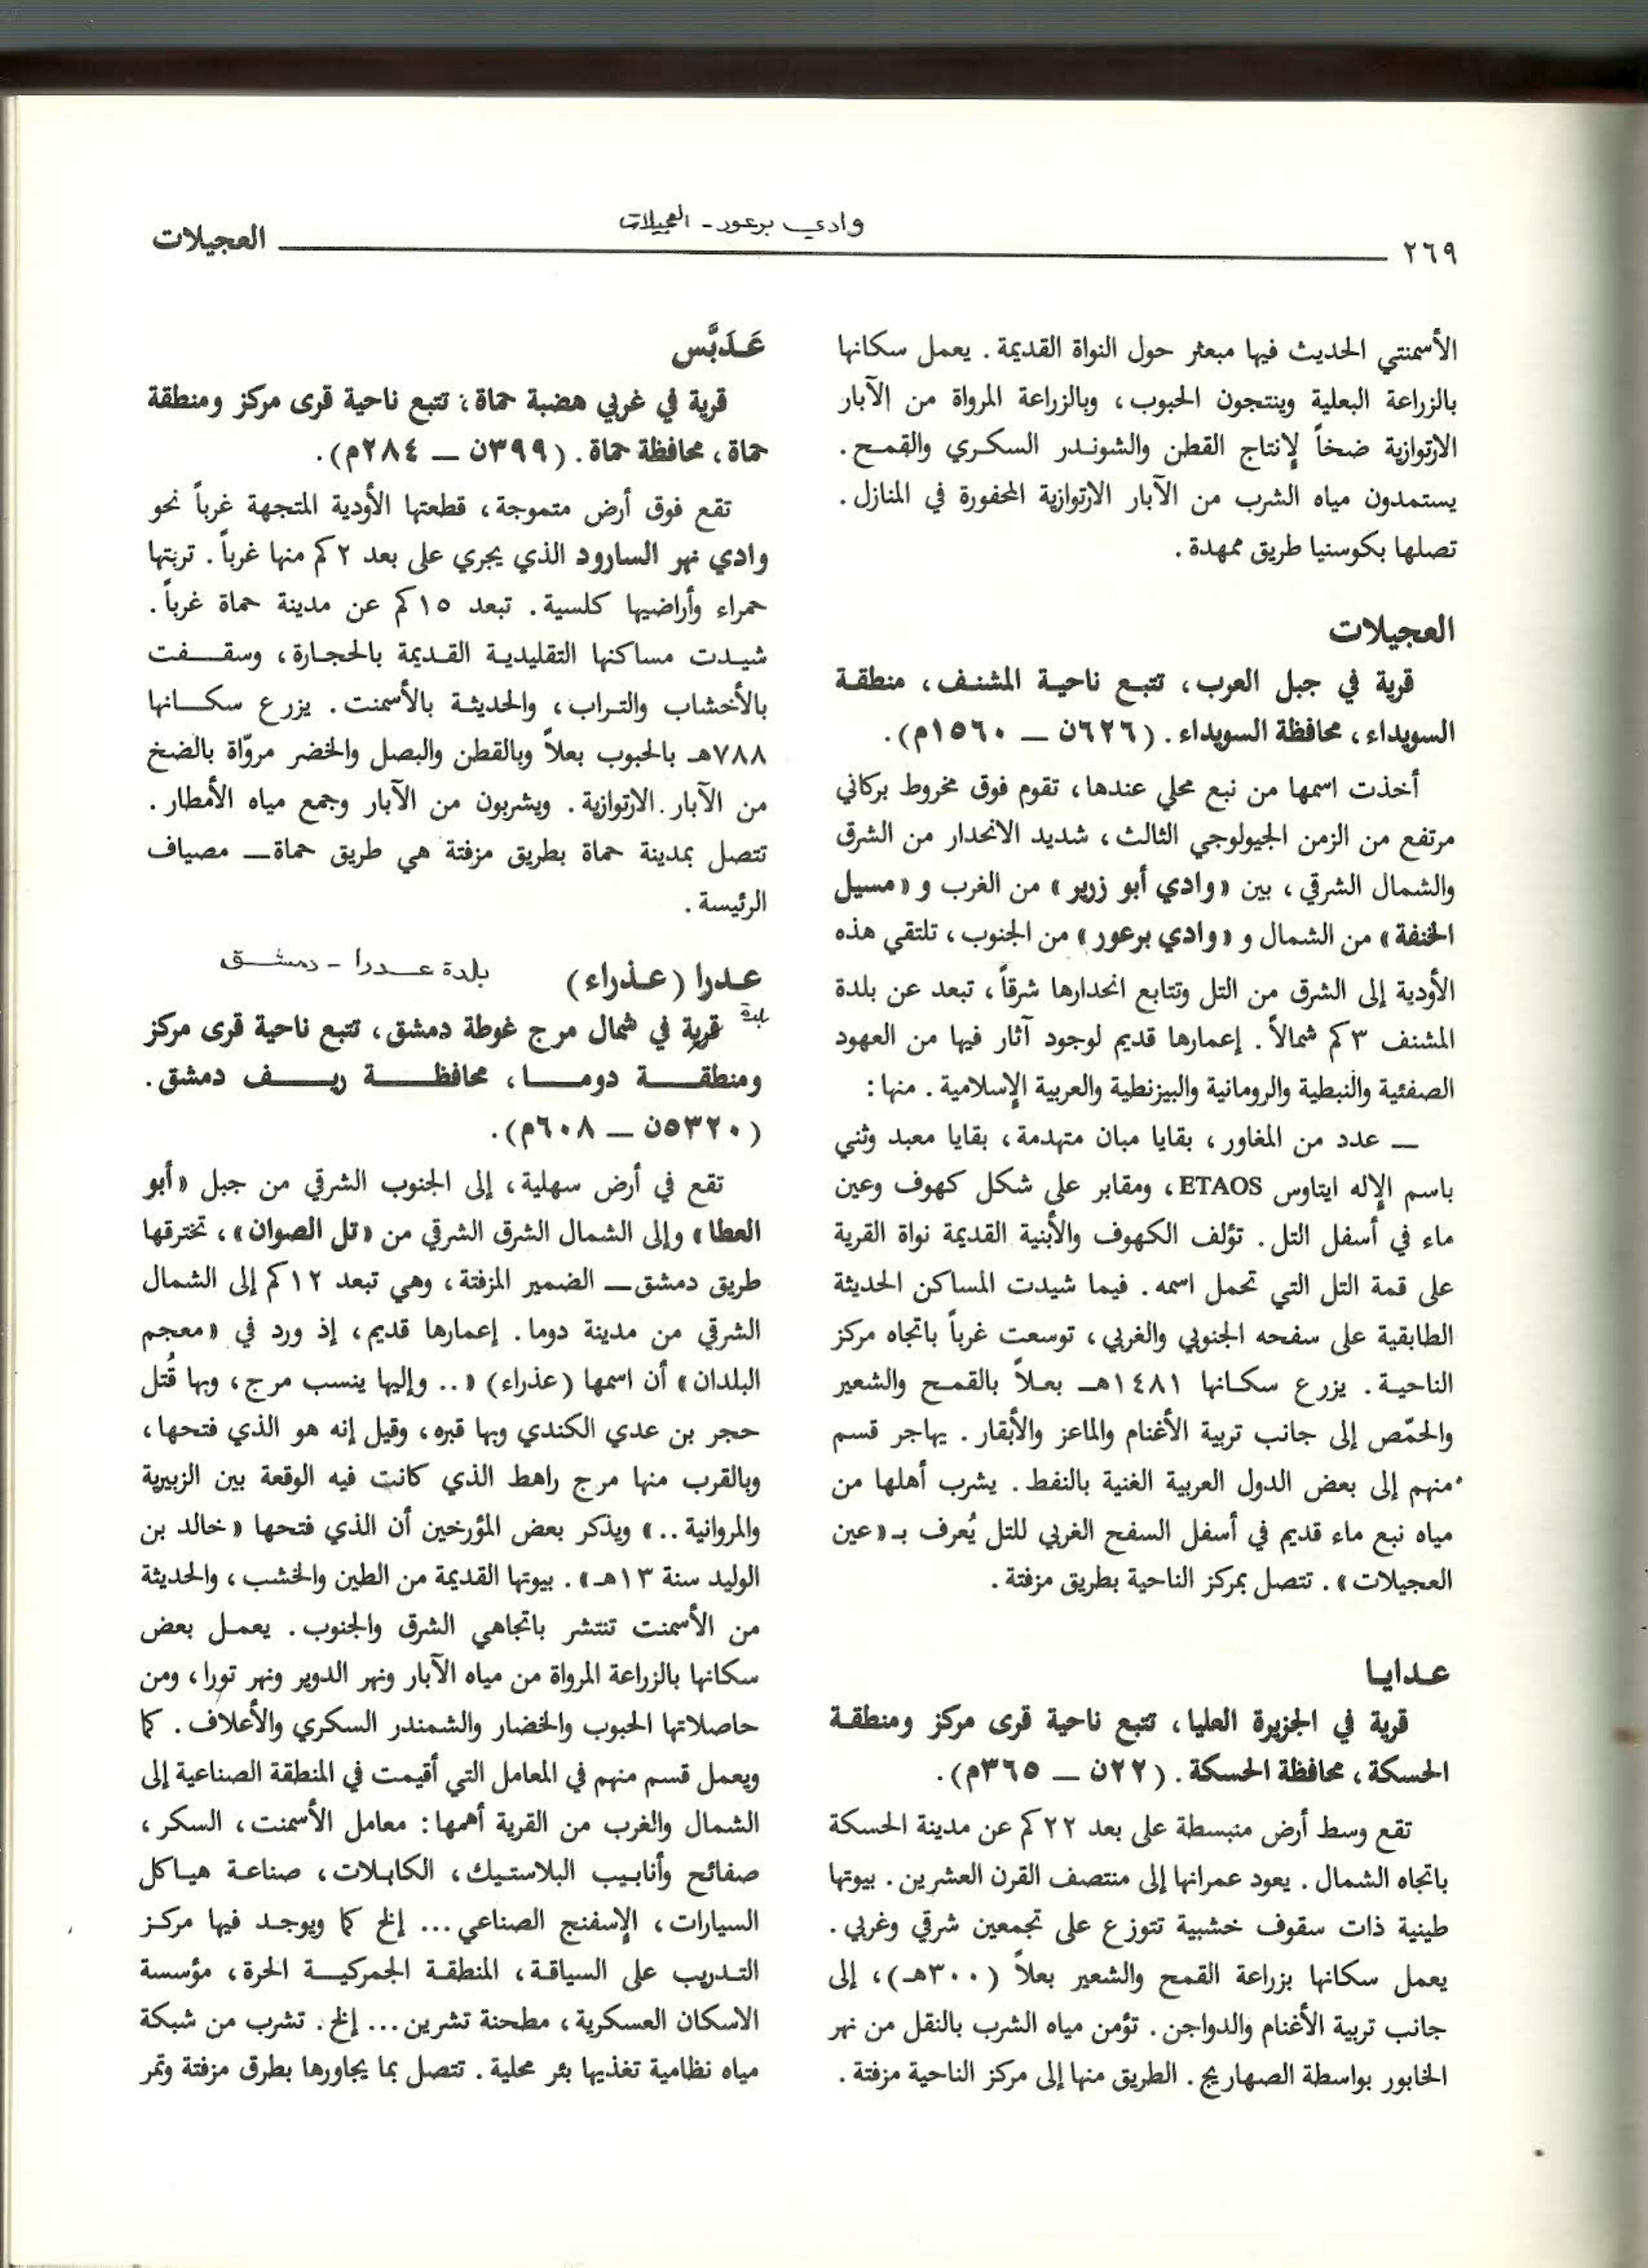 وادي برعور - العجيلات
٢٦٩ العجيلات
الأسمنتي الحديث فيها مبعثر حول النواة القديمة. يعمل سكانها
بالزراعة البعلية وينتجون الحبوب، وبالزراعة المرواة من الآبار
الارتوازية ضخاً لإنتاج القطن والشوندر السكري والقمح.
يستمدون مياه الشرب من الآبار الارتوازية المحفورة في المنازل.
تصلها بكوسنيا طريق ممهدة.
العجيلات
قرية في جبل العرب، تتبع ناحية المشنف، منطقة
السويداء، محافظة السويداء. (٦٢٦ن — ١٥٦٠م).
أخذت اسمها من نبع محلي عندها، تقوم فوق مخروط بركاني
مرتفع من الزمن الجيولوجي الثالث، شديد الانحدار من الشرق
والشمال الشرقي، بين «وادي أبو زرير» من الغرب و «مسيل
الخنفة» من الشمال و «وادي برعور» من الجنوب، تلتقي هذه
الأودية إلى الشرق من التل وتتابع انحدارها شرقاً، تبعد عن بلدة
المشنف ٣كم شمالاً. إعمارها قديم لوجود آثار فيها من العهود
الصفئية والنبطية والرومانية والبيزنطية والعربية الإسلامية. منها:
— عدد من المغاور، بقايا مبان متهدمة، بقايا معبد وثني
باسم الإله ايتاوس ETAOS، ومقابر على شكل كهوف وعين
ماء في أسفل التل. تؤلف الكهوف والأبنية القديمة نواة القرية
على قمة التل التي تحمل اسمه. فيما شيدت المساكن الحديثة
الطابقية على سفحه الجنوبي والغربي، توسعت غرباً باتجاه مركز
الناحية. يزرع سكانها ١٤٨١هـ بعلاً بالقمح والشعير
والحمّص إلى جانب تربية الأغنام والماعز والأبقار. يهاجر قسم
منهم إلى بعض الدول العربية الغنية بالنفط. يشرب أهلها من
مياه نبع ماء قديم في أسفل السفح الغربي للتل يُعرف بـ «عين
العجيلات». تتصل بمركز الناحية بطريق مزفتة.
عدايا
قرية في الجزيرة العليا، تتبع ناحية قرى مركز ومنطقة
الحسكة، محافظة الحسكة. (٢٢ن — ٣٦٥م).
تقع وسط أرض منبسطة على بعد ٢٢كم عن مدينة الحسكة
باتجاه الشمال. يعود عمرانها إلى منتصف القرن العشرين. بيوتها
طينية ذات سقوف خشبية تتوزع على تجمعين شرقي وغربي.
يعمل سكانها بزراعة القمح والشعير بعلاً (٣٠٠هـ)، إلى
جانب تربية الأغنام والدواجن. تؤمن مياه الشرب بالنقل من نهر
الخابور بواسطة الصهاريج. الطريق منها إلى مركز الناحية مزفتة.
عَدَبَّس
قرية في غربي هضبة حماة، تتبع ناحية قرى مركز ومنطقة
حماة، محافظة حماة. (٣٩٩ن — ٢٨٤م).
تقع فوق أرض متموجة، قطعتها الأودية المتجهة غرباً نحو
وادي نهر السارود الذي يجري على بعد ٢كم منها غرباً. تربتها
حمراء وأراضيها كلسية. تبعد ١٥كم عن مدينة حماة غرباً.
شيدت مساكنها التقليدية القديمة بالحجارة، وسقفت
بالأخشاب والتراب، والحديثة بالأسمنت. يزرع سكانها
٧٨٨هـ بالحبوب بعلاً وبالقطن والبصل والخضر مروّاة بالضخ
من الآبار الارتوازية. ويشربون من الآبار وجمع مياه الأمطار.
تتصل بمدينة حماة بطريق مزفتة هي طريق حماة — مصياف
الرئيسة.
عدرا (عذراء) بلدة عدرا - دمشق
بلدة
قرية في شمال مرج غوطة دمشق، تتبع ناحية قرى مركز
ومنطقة دوما، محافظة ريف دمشق.
(٥٣٢٠ن — ٦٠٨م).
تقع في أرض سهلية، إلى الجنوب الشرقي من جبل «أبو
العطا» وإلى الشمال الشرق الشرقي من «تل الصوان»، تخترقها
طريق دمشق — الضمير المزفتة، وهي تبعد ١٢كم إلى الشمال
الشرقي من مدينة دوما. إعمارها قديم، إذ ورد في «معجم
البلدان» أن اسمها (عذراء) «.. وإليها ينسب مرج، وبها قُتل
حجر بن عدي الكندي وبها قبره، وقيل إنه هو الذي فتحها،
وبالقرب منها مرج راهط الذي كانت فيه الوقعة بين الزبيرية
والمروانية ..» ويذكر بعض المؤرخين أن الذي فتحها «خالد بن
الوليد سنة ١٣هـ». بيوتها القديمة من الطين والخشب، والحديثة
من الأسمنت تنتشر باتجاهي الشرق والجنوب. يعمل بعض
سكانها بالزراعة المرواة من مياه الآبار ونهر الدوير ونهر تورا، ومن
حاصلاتها الحبوب والخضار والشمندر السكري والأعلاف. كما
ويعمل قسم منهم في المعامل التي أقيمت في المنطقة الصناعية إلى
الشمال والغرب من القرية أهمها: معامل الأسمنت، السكر،
صفائح وأنابيب البلاستيك، الكابلات، صناعة هياكل
السيارات، الإسفنج الصناعي... إلخ كما ويوجد فيها مركز
التدريب على السياقة، المنطقة الجمركية الحرة، مؤسسة
الاسكان العسكرية، مطحنة تشرين... إلخ. تشرب من شبكة
مياه نظامية تغذيها بئر محلية. تتصل بما يجاورها بطرق مزفتة وتمر